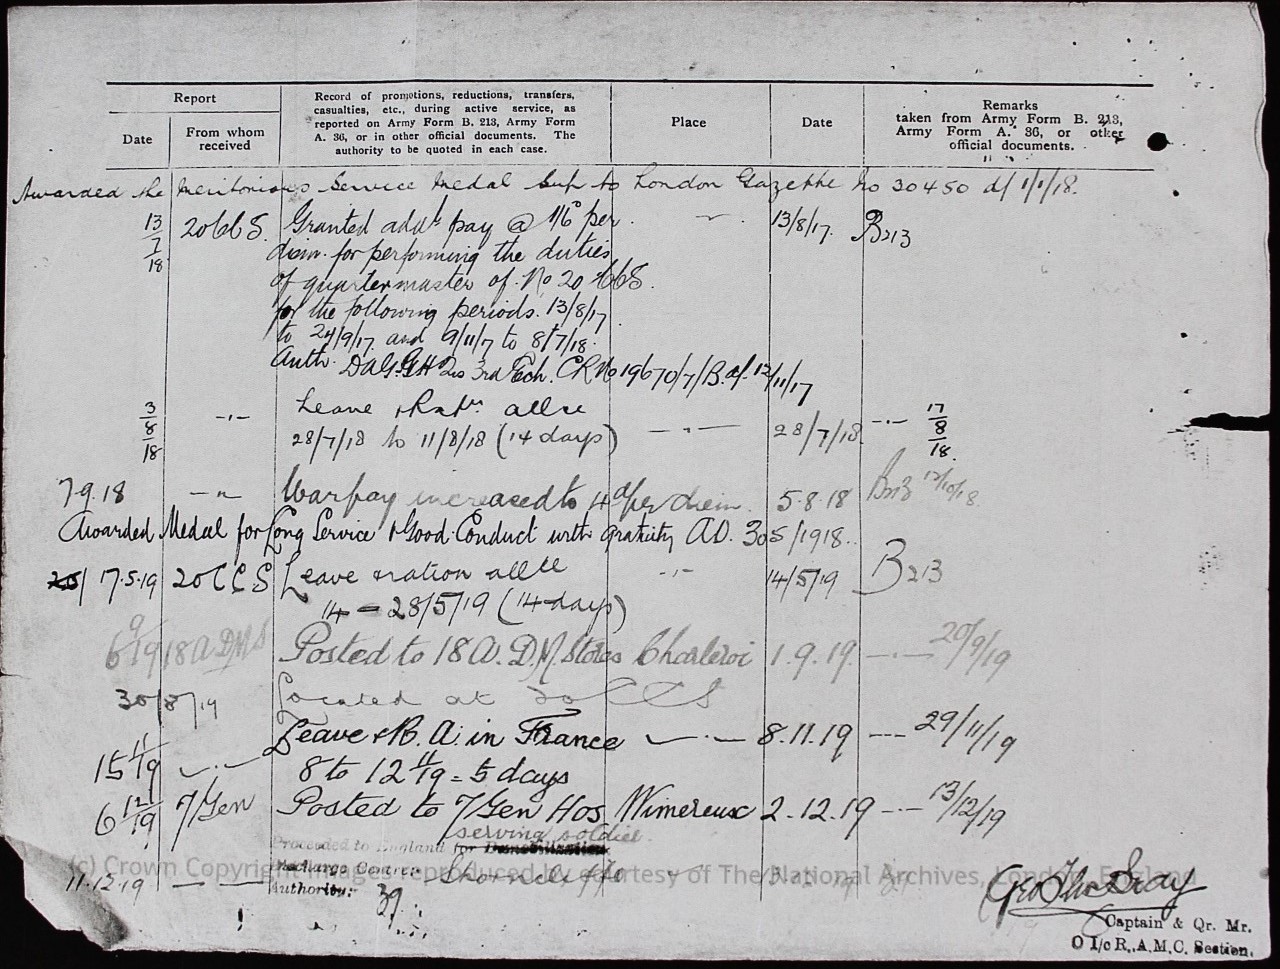 Report
Record of promotions, reductions, transfers,
casualties, etc., during active service, as
reported on Army Form B. 213, Army Form
A. 36, or in other official documents. The
authority to be quoted in each case.
Place
Date
Remarks
taken from Army Form B. 213,
Army Form A. 36, or other
official documents.
Date
From whom
received
Awarded the Meritorious Service Medal Sup to London Gazette No 30450 d/ 1/1/18.
13/7/18 20 CCS. Granted addl pay @ 1/6 per 13/8/17. B213
diem for performing the duties
of quartermaster of No 20 CCS.
for the following periods. 13/8/17
to 24/9/17 and 9/11/7 to 8/7/18.
Auth. DAG. GHQ 3rd Ech. CR No 19670/7/B. of 12/11/17
3/8/18 -"- Leave & Ratn allce
28/7/18 to 11/8/18 (14 days) -"- 28/7/18 -"- 17/8/18.
7.9.18 -"- War pay increased to 4d per diem. 5.8.18 B213 12/10/18.
Awarded Medal for Long Service & Good Conduct with gratuity AO. 305/1918.
17.5.19 20 C.C.S Leave ration allce -"- 14/5/19 B213
14 - 28/5/19 (14 days)
6/9/19 18 ADMS Posted to 18 A.D.M. Stores Charleroi 1.9.19. -"- 20/9/19
30/8/19 Located at 20 CCS
Leave & R.A. in France -"- 8.11.19 -"- 29/11/19
15 11/19 -"- 8 to 12 11/19 = 5 days
6 12/19 7/Gen Posted to 7/Gen Hos Wimereux 2.12.19 -"- 13/12/19
serving soldier
Proceeded to England for Demobilization
11.12.19 -"- Discharge Centre: Shorncliffe
Authority: 39
(c) Crown Copyright Images reproduced by courtesy of The National Archives, London, England
Captain & Qr. Mr.
O I/c R.A.M.C. Section.